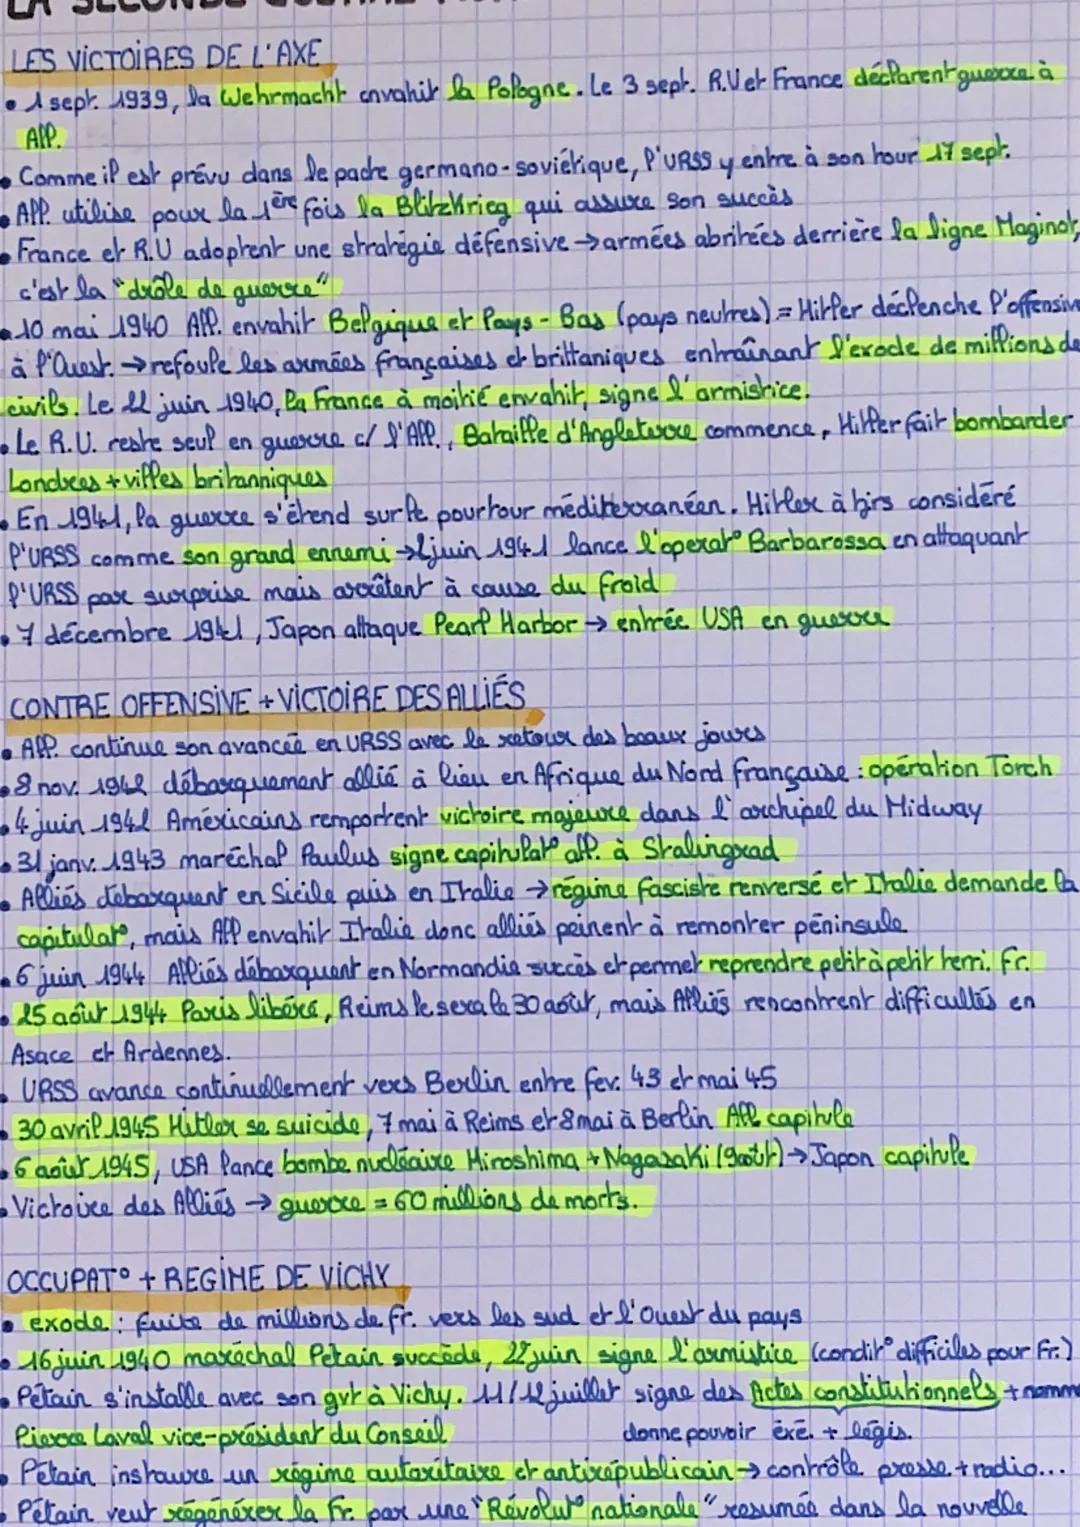 LA SECONDE
LES VICTOIRES DE L'AXE
• 1 sept. 1939, la Wehrmacht envahit la Pologne. Le 3 sept. R.U et France déclarent guerre à
All.
• Comme il est prévu dans le pacte germano-soviétique, l'URSS y entre à son tour 17 sept.
• All. utilise pour la 1ère fois la Blitzkrieg qui assure son succès
• France et R.U adoptent une stratégie défensive → armées abritées derrière la ligne Maginot,
c'est la "drôle de guerre"
• 10 mai 1940 All. envahit Belgique et Pays-Bas (pays neutres) = Hitler déclenche l'offensive
à l'Ouest. → refoule les armées françaises et brittaniques entraînant l'exode de millions de
civils. Le 22 juin 1940, la France à moitié envahit, signe l'armistice.
• Le R.U. reste seul en guerre c/ l'All., Bataille d'Angleterre commence, Hitler fait bombarder
Londres + villes britanniques
• En 1941, la guerre s'étend sur le pourtour méditerranéen. Hitler à tjrs considéré
l'URSS comme son grand ennemi → juin 1941 lance l'opérat° Barbarossa en attaquant
l'URSS par surprise mais arrêtent à cause du froid
• 7 décembre 1941, Japon attaque Pearl Harbor → entrée USA en guerre
CONTRE OFFENSIVE + VICTOIRE DES ALLIÉS
• All. continue son avancée en URSS avec le retour des beaux jours
• 8 nov. 1942 débarquement allié à lieu en Afrique du Nord française : opération Torch
• 4 juin 1942 Américains remportent victoire majeure dans l'archipel du Midway
• 31 janv. 1943 maréchal Paulus signe capitulat° all. à Stalingrad
• Alliés débarquent en Sicile puis en Italie → régime fasciste renversé et Italie demande la
capitulat°, mais All envahit Italie donc alliés peinent à remonter péninsule
• 6 juin 1944 Alliés débarquent en Normandie succès et permet reprendre petit à petit terri. fr.
• 25 août 1944 Paris libéré, Reims le sera le 30 août, mais Alliés rencontrent difficultés en
Asace et Ardennes.
• URSS avance continuellement vers Berlin entre fev. 43 et mai 45
• 30 avril 1945 Hitler se suicide, 7 mai à Reims et 8 mai à Berlin All capitule
• 6 août 1945, USA lance bombe nucléaire Hiroshima + Nagasaki (9 août) → Japon capitule
• Victoire des Alliés → guerre = 60 millions de morts.
OCCUPAT° + REGIME DE VICHY
• exode : fuite de millions de fr. vers les sud et l'Ouest du pays
• 16 juin 1940 maréchal Pétain succède, 22 juin signe l'armistice (condit° difficiles pour Fr.)
• Pétain s'installe avec son gvt à Vichy. 11/12 juillet signe des Actes constitutionnels + nomme
Pierre Laval vice-président du Conseil donne pouvoir éxé. + légis.
• Pétain instaure un régime autoritaire et antirépublicain → contrôle presse + radio...
• Pétain veut régénérer la Fr. par une "Révolut° nationale" resumée dans la nouvelle